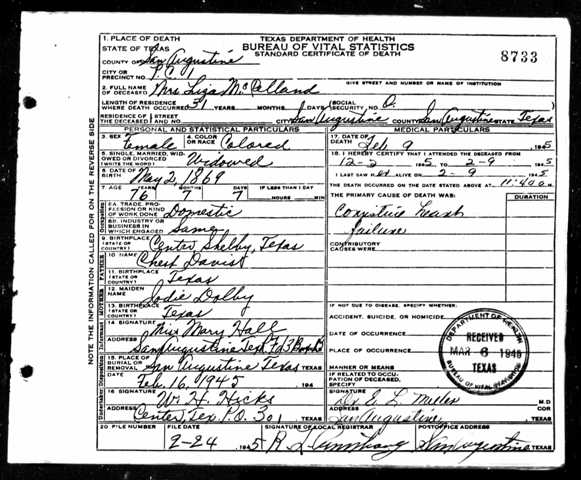 1. PLACE OF DEATH
STATE OF TEXAS
TEXAS DEPARTMENT OF HEALTH
BUREAU OF VITAL STATISTICS
STANDARD CERTIFICATE OF DEATH
8733
COUNTY OF San Augustine
CITY OR PRECINCT NO. P.C. 1
GIVE STREET AND NUMBER OR NAME OF INSTITUTION
2. FULL NAME OF DECEASED Mrs Liza McCelland
LENGTH OF RESIDENCE WHERE DEATH OCCURRED 51 YEARS MONTHS DAYS SOCIAL SECURITY NO. 0.
RESIDENCE OF THE DECEASED STREET AND NO. CITY San Augustine COUNTY San Augustine STATE Texas
PERSONAL AND STATISTICAL PARTICULARS
3. SEX Female 4. COLOR OR RACE Colored
5. SINGLE, MARRIED, WIDOWED OR DIVORCED (WRITE THE WORD) Widowed
6. DATE OF BIRTH May 2 1869
7. AGE YEARS MONTHS DAYS IF LESS THAN 1 DAY
76 7 7 HOURS MIN.
8A. TRADE, PROFESSION OR KIND OF WORK DONE Domestic
8B. INDUSTRY OR BUSINESS IN WHICH ENGAGED Same
9. BIRTHPLACE (STATE OR COUNTRY) Center Shelby, Texas
10. NAME Chest Davis
11. BIRTHPLACE (STATE OR COUNTRY) Texas
12. MAIDEN NAME Jodie Dolby
13. BIRTHPLACE (STATE OR COUNTRY) Texas
14. SIGNATURE Miss Mary Hall
ADDRESS San Augustine Tex
15. PLACE OF BURIAL OR REMOVAL San Augustine Texas TEXAS
DATE Feb. 16, 1945 194
16. SIGNATURE W. H. Hicks
ADDRESS Center, Tex. P.O. 301 TEXAS
MEDICAL PARTICULARS
17. DATE OF DEATH Feb 9 1945
18. I HEREBY CERTIFY THAT I ATTENDED THE DECEASED FROM
12-2 1945 TO 2-9 1945
I LAST SAW H ALIVE ON 2-9 1945
THE DEATH OCCURRED ON THE DATE STATED ABOVE AT 11:40 M.
THE PRIMARY CAUSE OF DEATH WAS: DURATION
failure
CONTRIBUTORY CAUSES WERE:
IF NOT DUE TO DISEASE, SPECIFY WHETHER:
ACCIDENT, SUICIDE, OR HOMICIDE
DATE OF OCCURRENCE
PLACE OF OCCURRENCE
MANNER OR MEANS
IF RELATED TO OCCUPATION OF DECEASED, SPECIFY
SIGNATURE Dr E. L. Miller M.D.
ADDRESS San Augustine COR TEXAS
DEPARTMENT OF HEALTH
RECEIVED
MAR 6 1945
TEXAS
BUREAU OF VITAL STATISTICS
20 FILE NUMBER FILE DATE SIGNATURE OF LOCAL REGISTRAR POSTOFFICE ADDRESS
2-24 1945 San Augustine TEXAS
NOTE THE INFORMATION CALLED FOR ON THE REVERSE SIDE